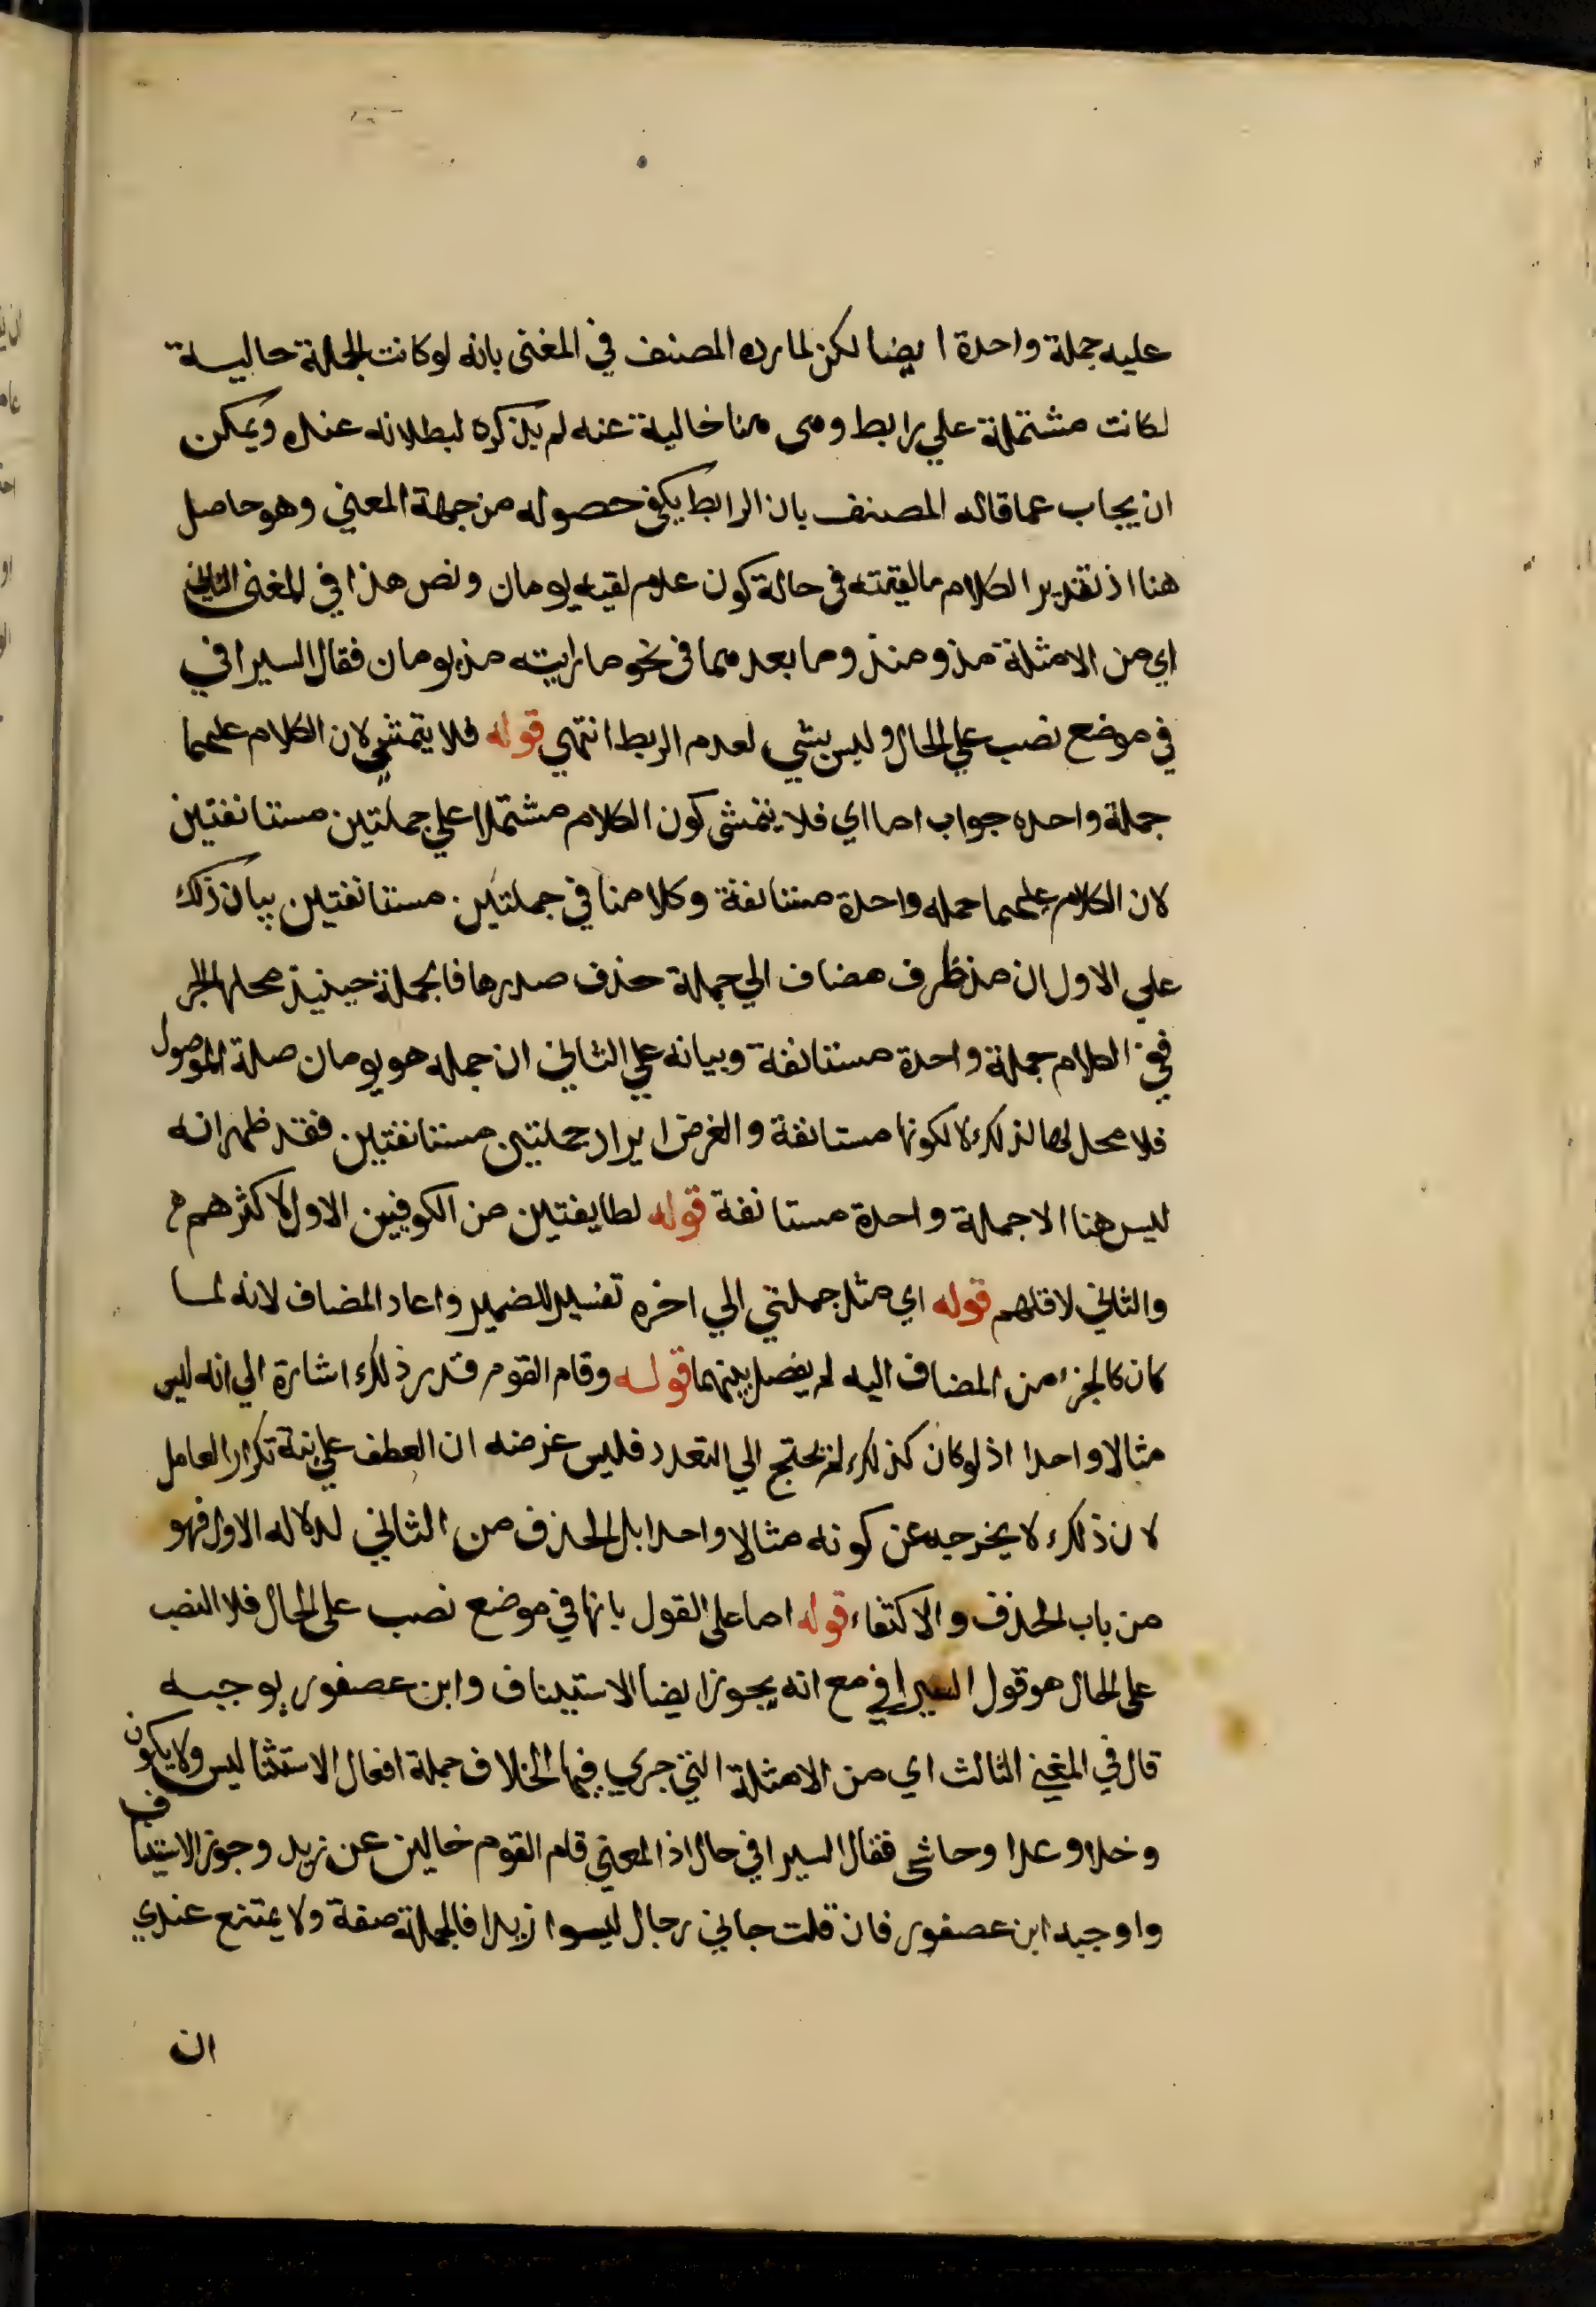 عليه جملة واحدة ايضا لكن لما رده المصنف في المغنى بانه لو كانت الجملة حالية
لكانت مشتملة علي رابط وهى هنا خالية عنه لم يذكره لبطلانه عنده ويمكن
ان يجاب عما قاله المصنف بان الرابط يكفي حصوله من جهة المعني وهو حاصل
هنا اذ تقدير الكلام ما لقيته فى حالة كون عدم لقيه يومان ونص هذا في المغنى الثاني
اي من الامثلة مذ ومنذ وما بعدهما فى نحو ما رايته مذ يومان فقال السيرافي
في موضع نصب علي الحال وليس بشي لعدم الربط انتهي قوله فلا يتمشي لان الكلام عليهما
جملة واحده جواب اما اي فلا يتمشى كون الكلام مشتملا علي جملتين مستانفتين
لان الكلام عليهما جمله واحدة مستانفة وكلامنا في جملتين مستانفتين بيان ذلك
علي الاول ان مذ ظرف مضاف الي جملة حذف صدرها فالجملة حينيذ محلها الجر
ففي الكلام جملة واحدة مستانفة وبيانه علي الثاني ان جمله هو يومان صلة الموصول
فلا محل لها لذلك لا لكونها مستانفة والغرض ايراد جملتين مستانفتين فقد ظهر انه
ليس هنا الا جملة واحدة مستانفة قوله لطايفتين من الكوفيين الاول لاكثرهم
والثاني لاقلهم قوله اي مثل جملتي الي اخره تفسير للضمير واعاد المضاف لانه لما
كان كالجزء من المضاف اليه لم يفصل بينهما قوله وقام القوم قدر ذلك اشارة الي انه ليس
مثالا واحدا اذ لو كان كذلك لم يحتج الي التعدد فليس غرضه ان العطف علي نية تكرار العامل
لان ذلك لا يخرجه عن كونه مثالا واحدا بل الحذف من الثاني لدلاله الاول فهو
من باب الحذف والاكتفاء قوله اما على القول بانها في موضع نصب على الحال فلا النصب
على الحال هو قول السيرافي مع انه يجوز ايضا الاستيناف وابن عصفور يوجبه
قال في المغني الثالث اي من الامثلة التي جري فيها الخلاف جملة افعال الاستثنا ليس ولا يكون
وخلا وعدا وحاشى فقال السيرافي حال اذ المعني قام القوم خالين عن زيد وجوز الاستيناف
واوجبه ابن عصفور فان قلت جاني رجال ليسوا زيدا فالجملة صفة ولا يمتنع عندي
ان